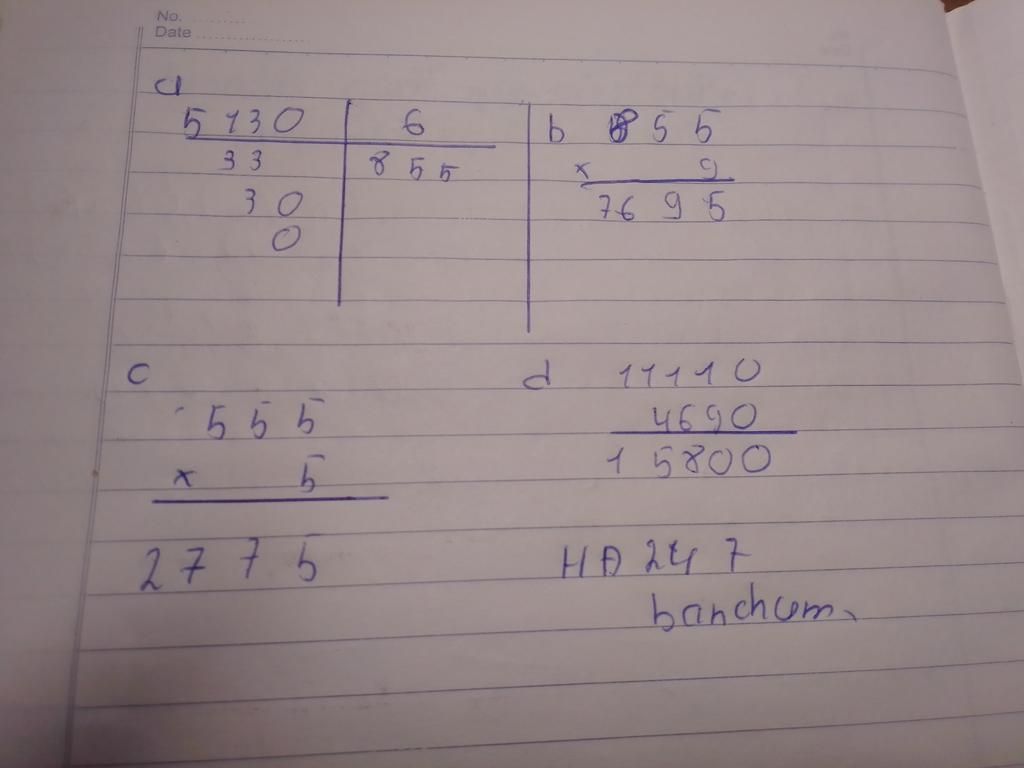 No.
Date
a
5130 6
33 855
30
0
b 855
x 9
7695
c
555
x 5
2775
d 11110
4690
15800
HD 247
banchum